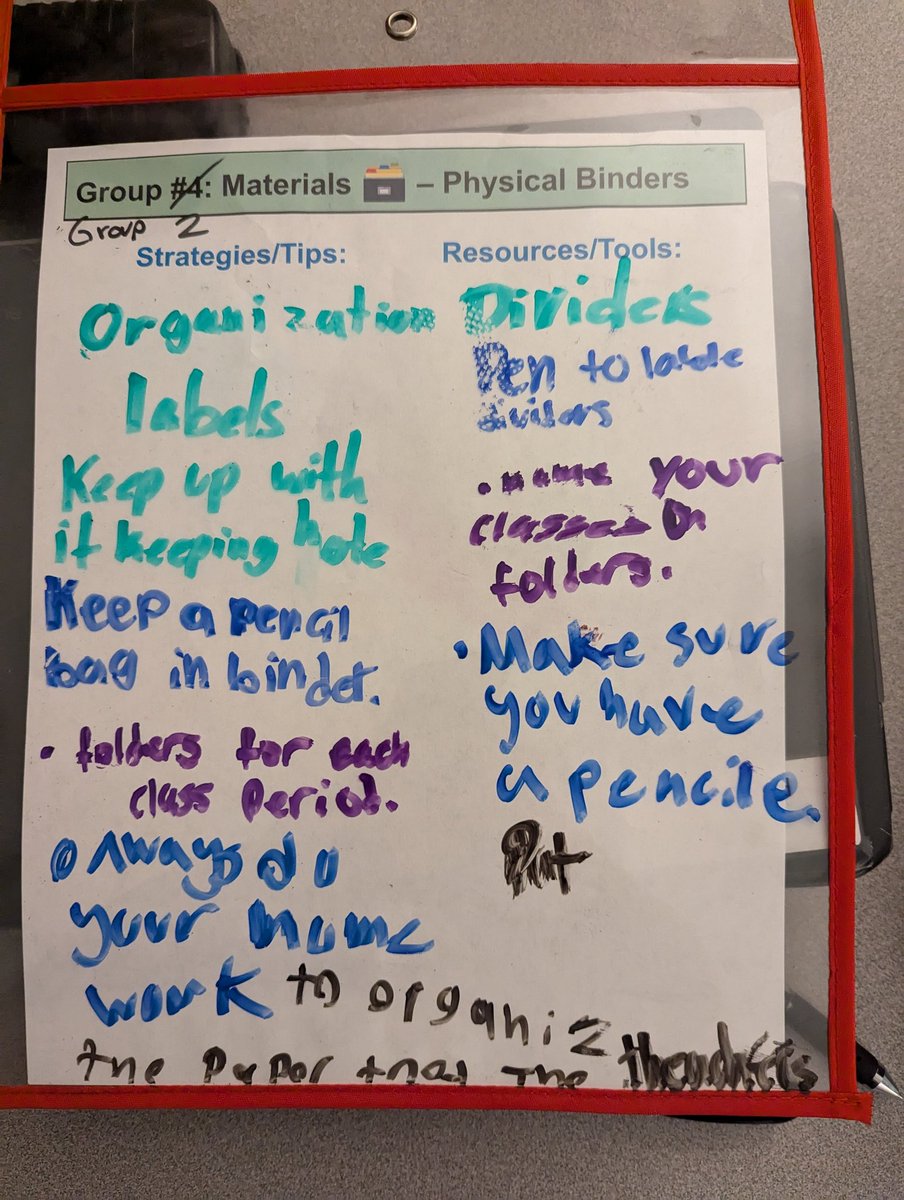 Group #4: Materials – Physical Binders
Group 2
Strategies/Tips:
Organization
labels
Keep up with
it keeping hole
Keep a pencil
bag in binder.
• folders for each
class Period.
o Always do
your home
work to organiz
the Paper that the
Resources/Tools:
Dividers
Pen to lable
dividers
• name your
classes on
folders.
• Make sure
you have
a pencile.
Put